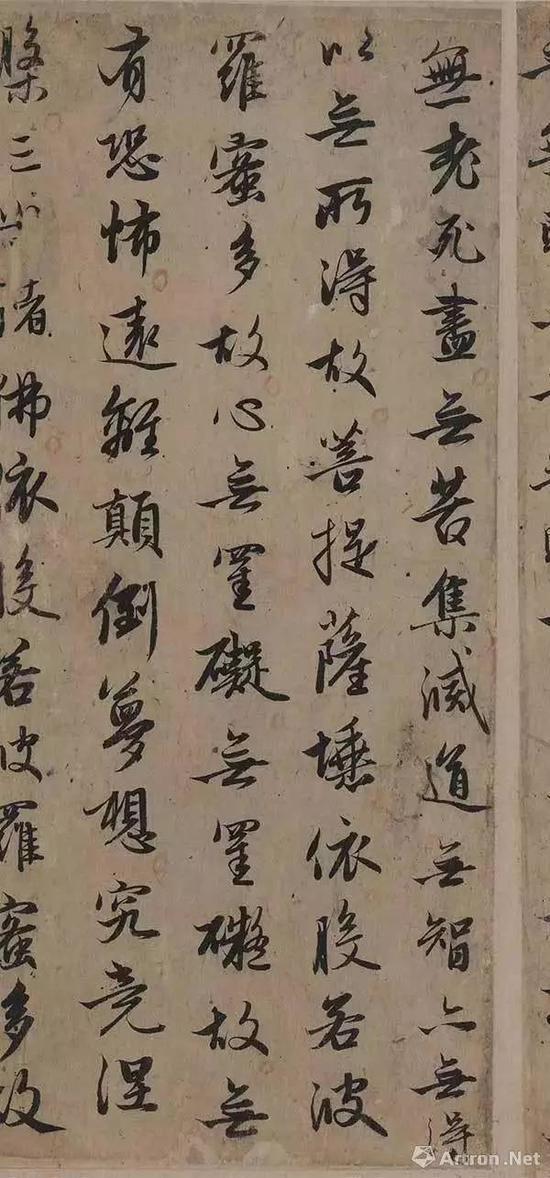 無老死盡無苦集滅道無智亦無得
以無所得故菩提薩埵依般若波
羅蜜多故心無罣礙無罣礙故無
有恐怖遠離顛倒夢想究竟涅
槃三世諸佛依般若波羅蜜多故
Artron.Net